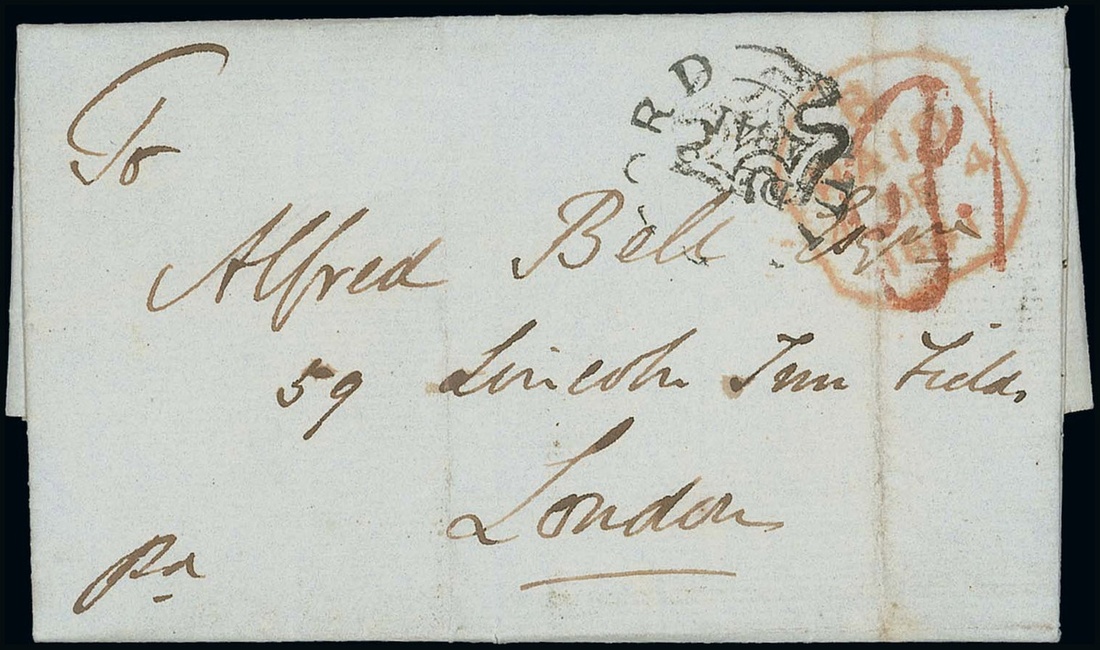 To
Alfred Bell Esqre
59 Lincoln Inn Fields
London
Pd
PAID